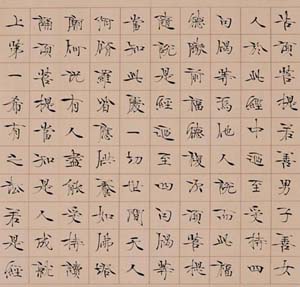 告須菩提若善男子善女
人於此經中乃至受持四
句偈等為他人說而此福
德勝前福德復次須菩提
隨說是經乃至四句偈等
當知此處一切世間天人
阿修羅皆應供養如佛塔
廟何況有人盡能受持讀
誦須菩提當知是人成就
上第一希有之法若是經